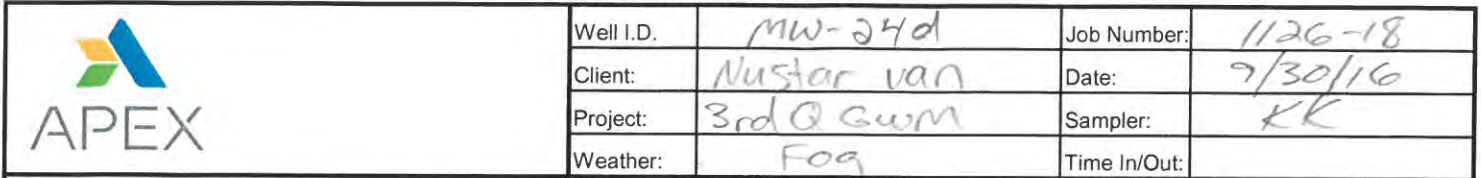 APEX
Well I.D. MW-24d Job Number: 1126-18
Client: Nustar van Date: 9/30/16
Project: 3rd Q GWM Sampler: KK
Weather: Fog Time In/Out: